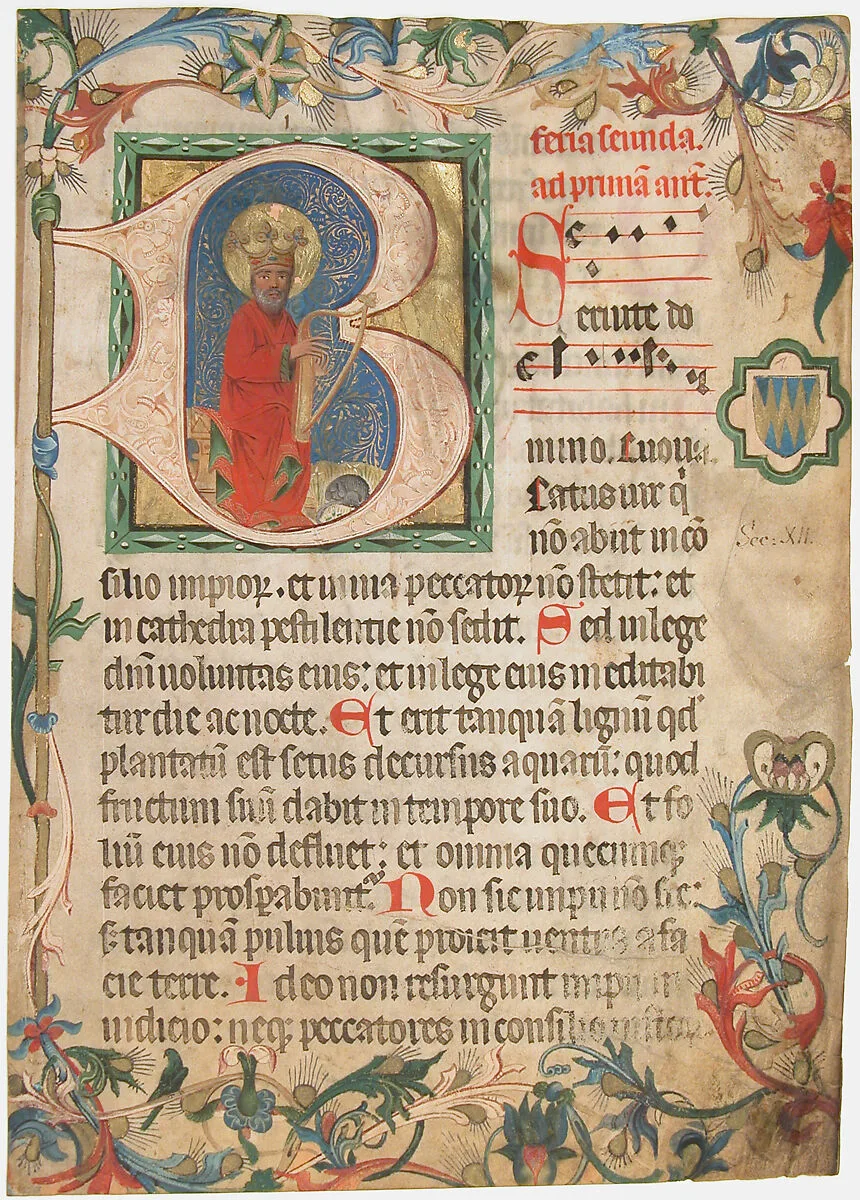 B
feria scunda.
ad primā ant̄.
Seruite do
mino. Euouae.
Eatus uir q̄
nō abiit in cō
silio impioꝝ. et in uia peccatoꝝ nō stetit: et
in cathedra pestilentie nō sedit. Sed in lege
dn̄i uoluntas eius: et in lege eius meditabi
tur die ac nocte. Et erit tanquā lignū qd̓
plantatū est secus decursus aquarū: quod
fructum suū dabit in tempore suo. Et fo
liū eius nō defluet: et omnia quecumqꝫ
faciet prosꝑabunt̉. Non sic impii nō sic:
sꝫ tanquā puluis quē proicit uentus a fa
cie terre. Ideo non resurgunt impii in
iudicio: neqꝫ peccatores in consilio iustoꝝ
Sec: XII.